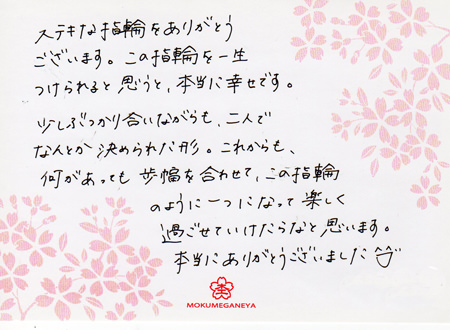 ステキな指輪をありがとう
ございます。この指輪を一生
つけられると思うと、本当に幸せです。
少しぶつかり合いながらも、二人で
なんとか決められた形。これからも、
何があっても歩幅を合わせて、この指輪
のように一つになって楽しく
過ごせていけたらなと思います。
本当にありがとうございました
MOKUMEGANEYA